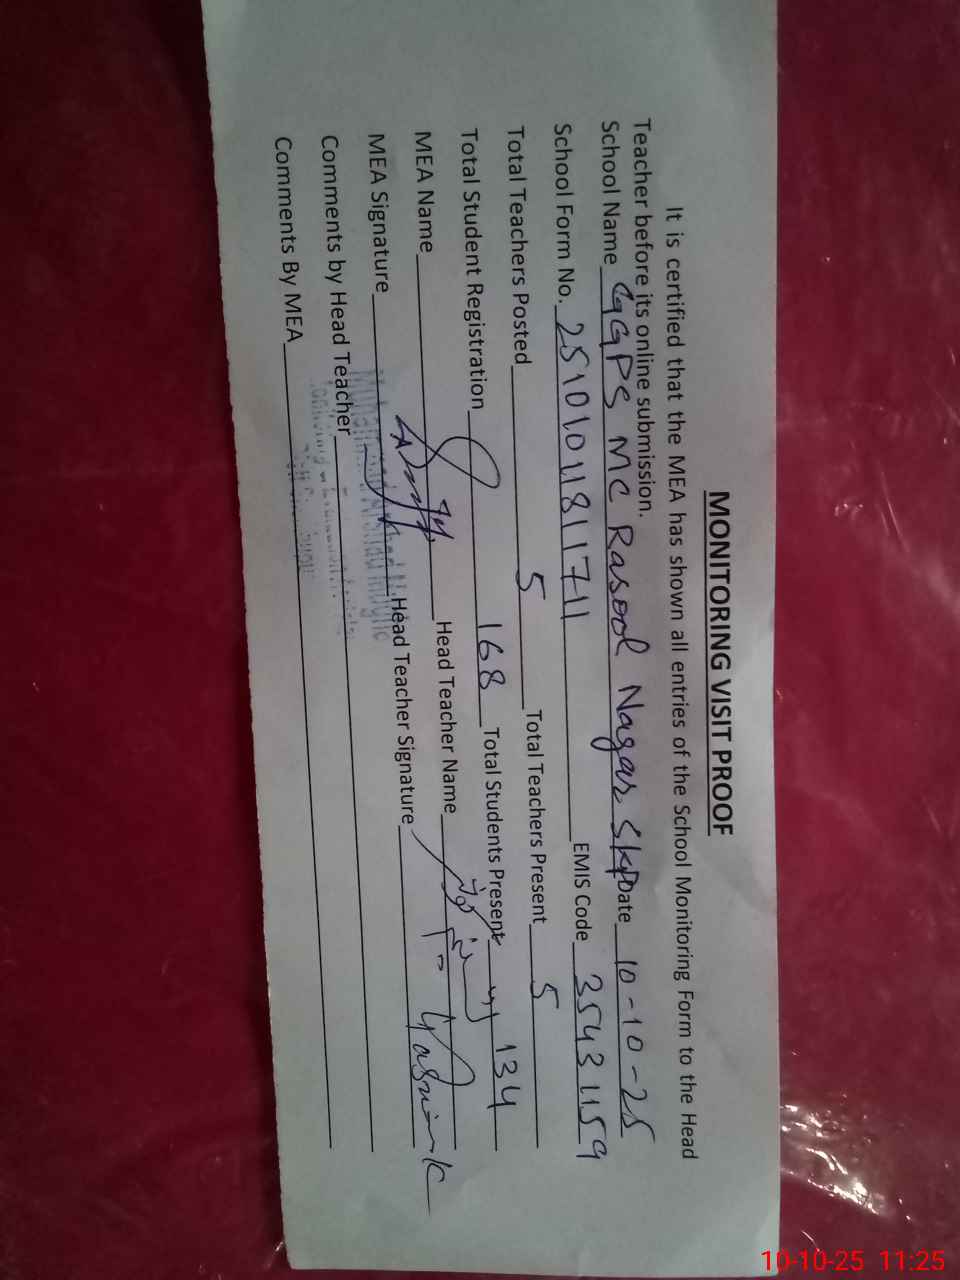 MONITORING VISIT PROOF
It is certified that the MEA has shown all entries of the School Monitoring Form to the Head
Teacher before its online submission.
School Name GGPS MC Rasool Nagar SKP Date 10-10-25
School Form No. 2510101181171 EMIS Code 35431159
Total Teachers Posted 5 Total Teachers Present 5
Total Student Registration 168 Total Students Present 134
MEA Name Head Teacher Name
MEA Signature Head Teacher Signature
Comments by Head Teacher
Comments By MEA
10-10-25 11:25